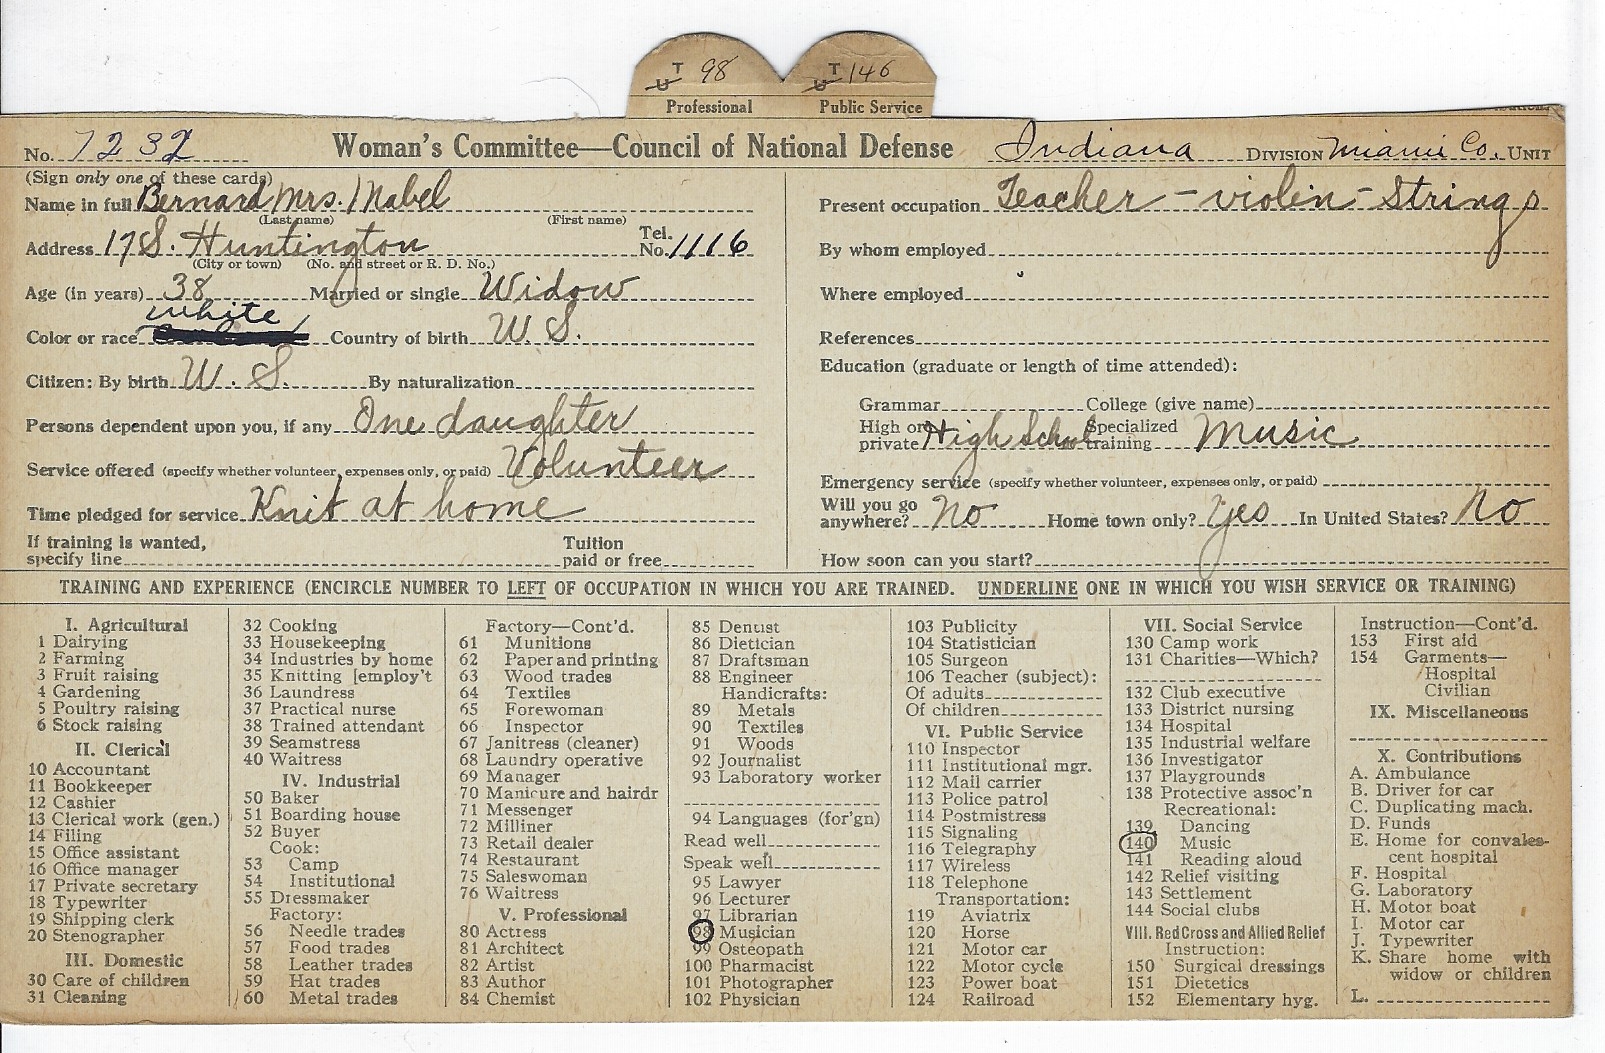 T
U 98
T
U 146
Professional
Public Service
No. 7232 Woman's Committee—Council of National Defense Indiana DIVISION Miami Co. UNIT
(Sign only one of these cards)
Name in full Bernard, Mrs. Mabel
(Last name) (First name)
Address 17 S. Huntington Tel. No. 1116
(City or town) (No. and street or R. D. No.)
Age (in years) 38 Married or single Widow
Color or race white Country of birth U. S.
Citizen: By birth U. S. By naturalization
Persons dependent upon you, if any One daughter
Service offered (specify whether volunteer, expenses only, or paid) Volunteer
Time pledged for service Knit at home
If training is wanted, specify line Tuition paid or free
Present occupation Teacher - violin - Strings
By whom employed
Where employed
References
Education (graduate or length of time attended):
Grammar College (give name)
High or private High School Specialized training Music
Emergency service (specify whether volunteer, expenses only, or paid)
Will you go anywhere? No Home town only? Yes In United States? No
How soon can you start?
TRAINING AND EXPERIENCE (ENCIRCLE NUMBER TO LEFT OF OCCUPATION IN WHICH YOU ARE TRAINED. UNDERLINE ONE IN WHICH YOU WISH SERVICE OR TRAINING)
I. Agricultural
1 Dairying
2 Farming
3 Fruit raising
4 Gardening
5 Poultry raising
6 Stock raising
II. Clerical
10 Accountant
11 Bookkeeper
12 Cashier
13 Clerical work (gen.)
14 Filing
15 Office assistant
16 Office manager
17 Private secretary
18 Typewriter
19 Shipping clerk
20 Stenographer
III. Domestic
30 Care of children
31 Cleaning
32 Cooking
33 Housekeeping
34 Industries by home
35 Knitting [employ't
36 Laundress
37 Practical nurse
38 Trained attendant
39 Seamstress
40 Waitress
IV. Industrial
50 Baker
51 Boarding house
52 Buyer
Cook:
53 Camp
54 Institutional
55 Dressmaker
Factory:
56 Needle trades
57 Food trades
58 Leather trades
59 Hat trades
60 Metal trades
Factory—Cont'd.
61 Munitions
62 Paper and printing
63 Wood trades
64 Textiles
65 Forewoman
66 Inspector
67 Janitress (cleaner)
68 Laundry operative
69 Manager
70 Manicure and hairdr
71 Messenger
72 Milliner
73 Retail dealer
74 Restaurant
75 Saleswoman
76 Waitress
V. Professional
80 Actress
81 Architect
82 Artist
83 Author
84 Chemist
85 Dentist
86 Dietician
87 Draftsman
88 Engineer
Handicrafts:
89 Metals
90 Textiles
91 Woods
92 Journalist
93 Laboratory worker
94 Languages (for'gn)
Read well
Speak well
95 Lawyer
96 Lecturer
97 Librarian
98 Musician
99 Osteopath
100 Pharmacist
101 Photographer
102 Physician
103 Publicity
104 Statistician
105 Surgeon
106 Teacher (subject):
Of adults
Of children
VI. Public Service
110 Inspector
111 Institutional mgr.
112 Mail carrier
113 Police patrol
114 Postmistress
115 Signaling
116 Telegraphy
117 Wireless
118 Telephone
Transportation:
119 Aviatrix
120 Horse
121 Motor car
122 Motor cycle
123 Power boat
124 Railroad
VII. Social Service
130 Camp work
131 Charities—Which?
132 Club executive
133 District nursing
134 Hospital
135 Industrial welfare
136 Investigator
137 Playgrounds
138 Protective assoc'n
Recreational:
139 Dancing
140 Music
141 Reading aloud
142 Relief visiting
143 Settlement
144 Social clubs
VIII. Red Cross and Allied Relief
Instruction:
150 Surgical dressings
151 Dietetics
152 Elementary hyg.
Instruction—Cont'd.
153 First aid
154 Garments—
Hospital
Civilian
IX. Miscellaneous
X. Contributions
A. Ambulance
B. Driver for car
C. Duplicating mach.
D. Funds
E. Home for convales-
cent hospital
F. Hospital
G. Laboratory
H. Motor boat
I. Motor car
J. Typewriter
K. Share home with
widow or children
L.